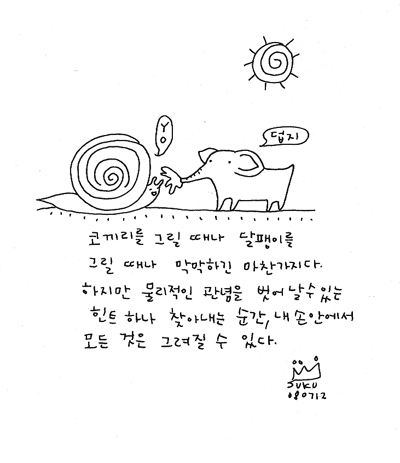 YO
덥지
코끼리를 그릴 때나 달팽이를
그릴 때나 막막하긴 마찬가지다.
하지만 물리적인 관념을 벗어날수있는
힌트 하나 찾아내는 순간, 내 손안에서
모든 것은 그려질 수 있다.
SUKU
080712